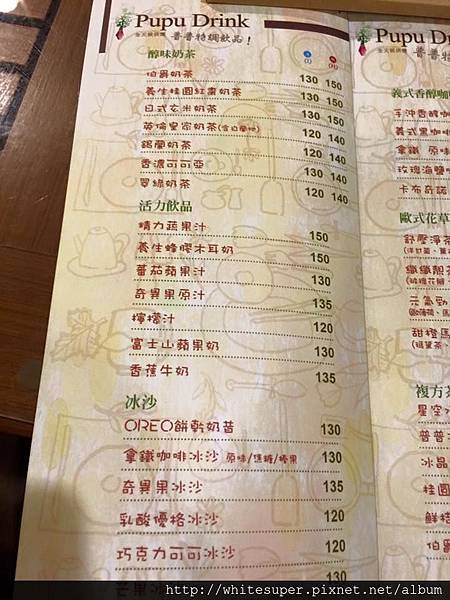 Pupu Drink
普普特調飲品!
醇味奶茶 (I) (H)
伯爵奶茶 130 150
養生桂圓紅棗奶茶 130 150
日式玄米奶茶 130 150
英倫皇家奶茶 120 140
錫蘭奶茶 120 140
香濃可可亞 130 140
翠綠奶茶 120 140
活力飲品
精力蔬果汁 150
養生蜂膠木耳奶 150
蕃茄蘋果汁 130
奇異果原汁 135
檸檬汁 120
富士山蘋果奶 130
香蕉牛奶 135
冰沙
OREO餅乾奶昔 130
拿鐵咖啡冰沙 原味/焦糖/榛果 130
奇異果冰沙 135
乳酸優格冰沙 120
巧克力可可冰沙 120
130
Pupu Drink
普普特
義式香醇咖
手沖香醇咖
義式黑咖
拿鐵 原味
玫瑰海鹽咖
卡布奇諾
歐式花草
舒壓淨茶
纖纖靚茶
元氣勁
甜橙馬
複方茶
星空水
普普
冰晶
桂圓
鮮桔
伯爵
http://whitesuper.pixnet.net/album